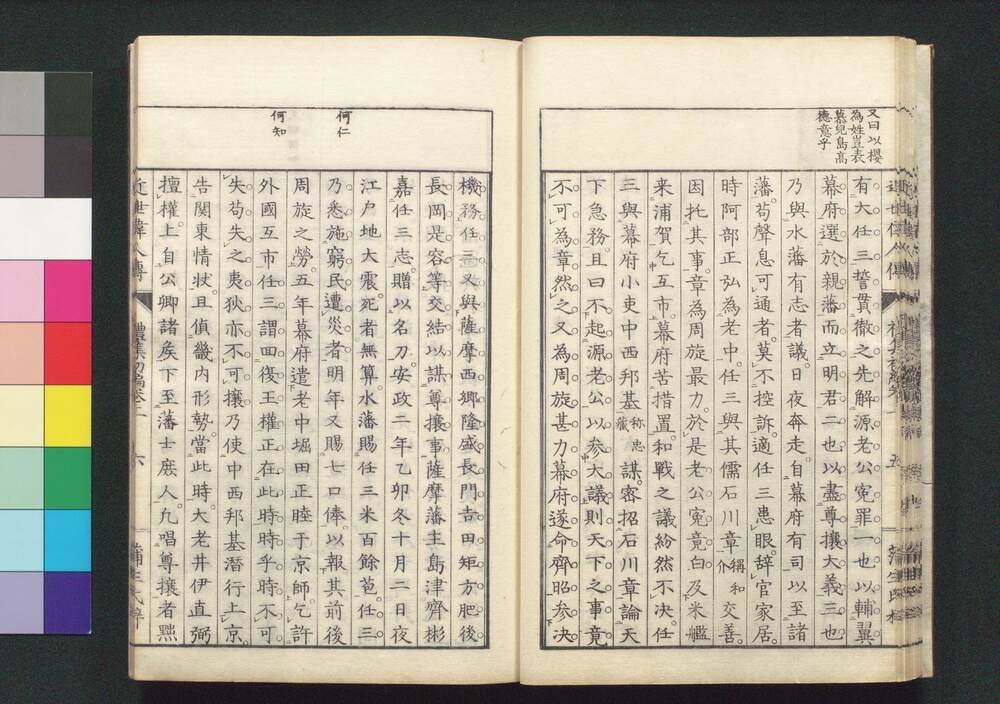 又曰以櫻
為姓豈表
慕兒島高
德意乎
有大任三誓貫徹之先解源老公寃罪一也以輔翼
幕府選於親藩而立明君二也以盡尊攘大義三也
乃與水藩有志者議日夜奔走自幕府有司以至諸
藩苟聲息可通者莫不控訴適任三患眼辞官家居
時阿部正弘為老中任三與其儒石川章稱和介交善
因托其事章為周旋最力於是老公寃竟白及米艦
来浦賀乞互市幕府苦措置和戰之議紛然不決任
三與幕府小吏中西邦基称忠藏謀密招石川章論天
下急務且曰不起源老公以參大議則天下之事竟
不可為章然之又為周旋甚力幕府遂命齊昭參決
何仁
何知
機務任三又與薩摩西鄉隆盛長門吉田矩方肥後
長岡是容等交結以謀尊攘事薩摩藩主島津齊彬
嘉任三志贈以名刀安政二年乙卯冬十月二日夜
江戶地大震死者無算水藩賜任三米百餘苞任三
乃悉施窮民遭災者明年又賜七口俸以報其前後
周旋之勞五年幕府遣老中堀田正睦于京師乞許
外國互市任三謂回復王權正在此時時乎時不可
失苟失之夷狄亦不可攘乃使中西邦基潜行上京
告関東情狀且偵畿内形勢當此時大老井伊直弼
擅權上自公卿諸矦下至藩士庶人九唱尊攘者黜
近世偉人傳
禮集初編卷二
六
蒲生氏梓